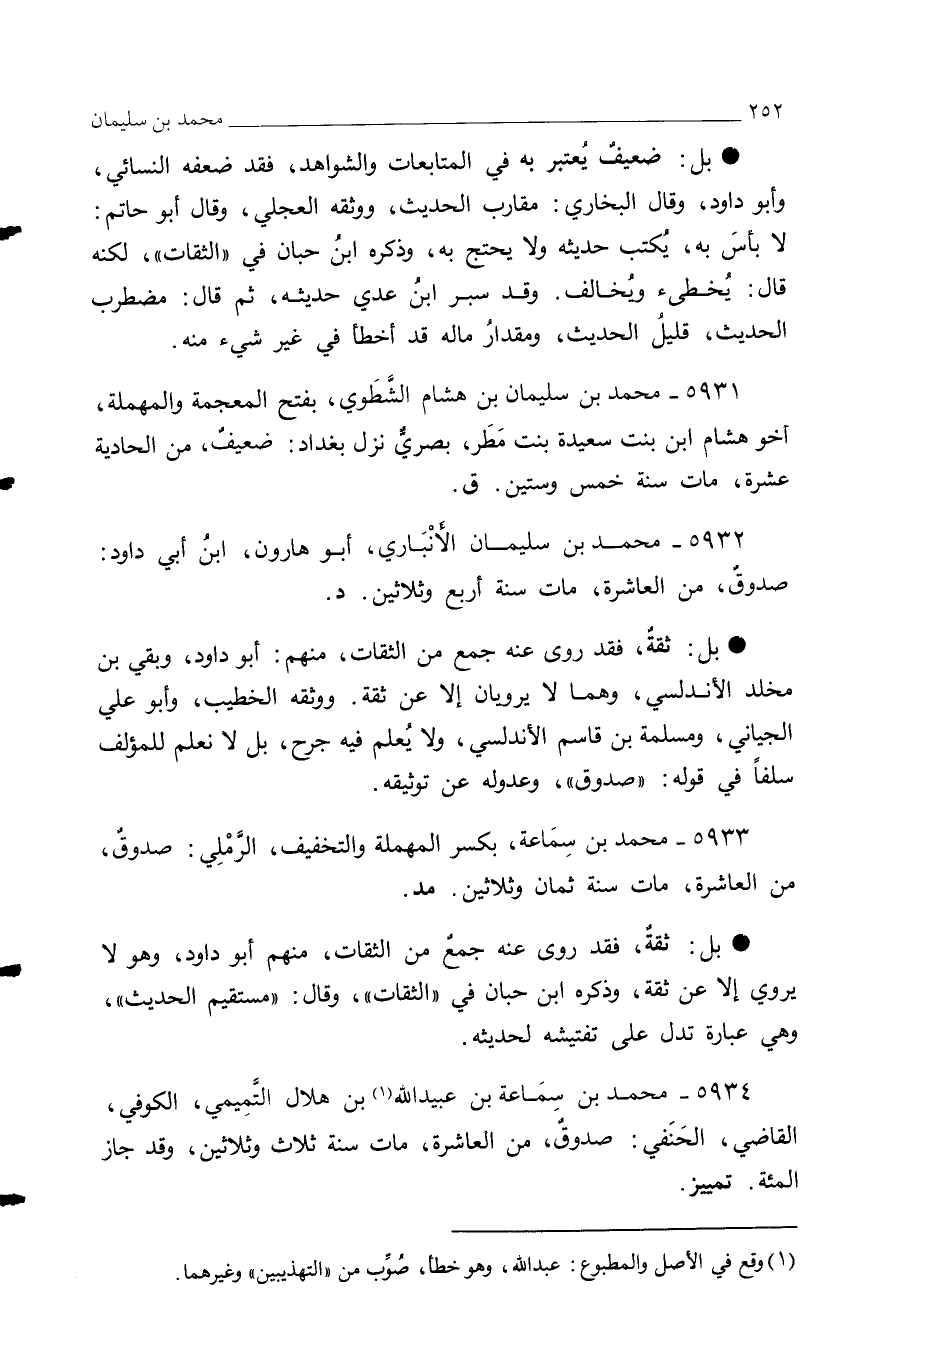 ٢٥٢ محمد بن سليمان
● بل: ضعيفٌ يُعتبر به في المتابعات والشواهد، فقد ضعفه النسائي،
وأبو داود، وقال البخاري: مقارب الحديث، ووثقه العجلي، وقال أبو حاتم:
لا بأسَ به، يُكتب حديثه ولا يحتج به، وذكره ابنُ حبان في «الثقات»، لكنه
قال: يُخـطىء ويُخـالف. وقـد سبـر ابنُ عدي حديثـه، ثم قال: مضطرب
الحديث، قليلُ الحديث، ومقدارُ ماله قد أخطأ في غير شيء منه.
٥٩٣١ ـ محمد بن سليمان بن هشام الشَّطَوي، بفتح المعجمة والمهملة،
أخو هشام ابن بنت سعيدة بنت مَطَر، بصريٌّ نزل بغداد: ضعيفٌ، من الحادية
عشرة، مات سنة خمس وستين. ق.
٥٩٣٢ ـ محمـد بن سليمـان الأَنْبَـاري، أبـو هارون، ابنُ أبي داود:
صدوقٌ، من العاشرة، مات سنة أربع وثلاثين. د.
● بل: ثقةٌ، فقد روى عنه جمع من الثقات، منهم: أبو داود، وبقي بن
مخلد الأنـدلسي، وهمـا لا يرويان إلا عن ثقة. ووثقه الخطيب، وأبو علي
الجياني، ومسلمة بن قاسم الأندلسي، ولا يُعلم فيه جرح، بل لا نعلم للمؤلف
سلفاً في قوله: «صدوق»، وعدوله عن توثيقه.
٥٩٣٣ ـ محمد بن سِمَاعة، بكسر المهملة والتخفيف، الرَّمْلِي: صدوقٌ،
من العاشرة، مات سنة ثمان وثلاثين. مد.
● بل: ثقةٌ، فقد روى عنه جمعٌ من الثقات، منهم أبو داود، وهو لا
يروي إلا عن ثقة، وذكره ابن حبان في «الثقات»، وقال: «مستقيم الحديث»،
وهي عبارة تدل على تفتيشه لحديثه.
٥٩٣٤ ـ محمـد بن سِمَـاعة بن عبيدالله(١) بن هلال التَّمِيمي، الكوفي،
القاضي، الحَنَفي: صدوقٌ، من العاشرة، مات سنة ثلاث وثلاثين، وقد جاز
المئة. تمييز.
(١) وقع في الأصل والمطبوع: عبدالله، وهو خطأ، صُوِّب من «التهذيبين» وغيرهما.